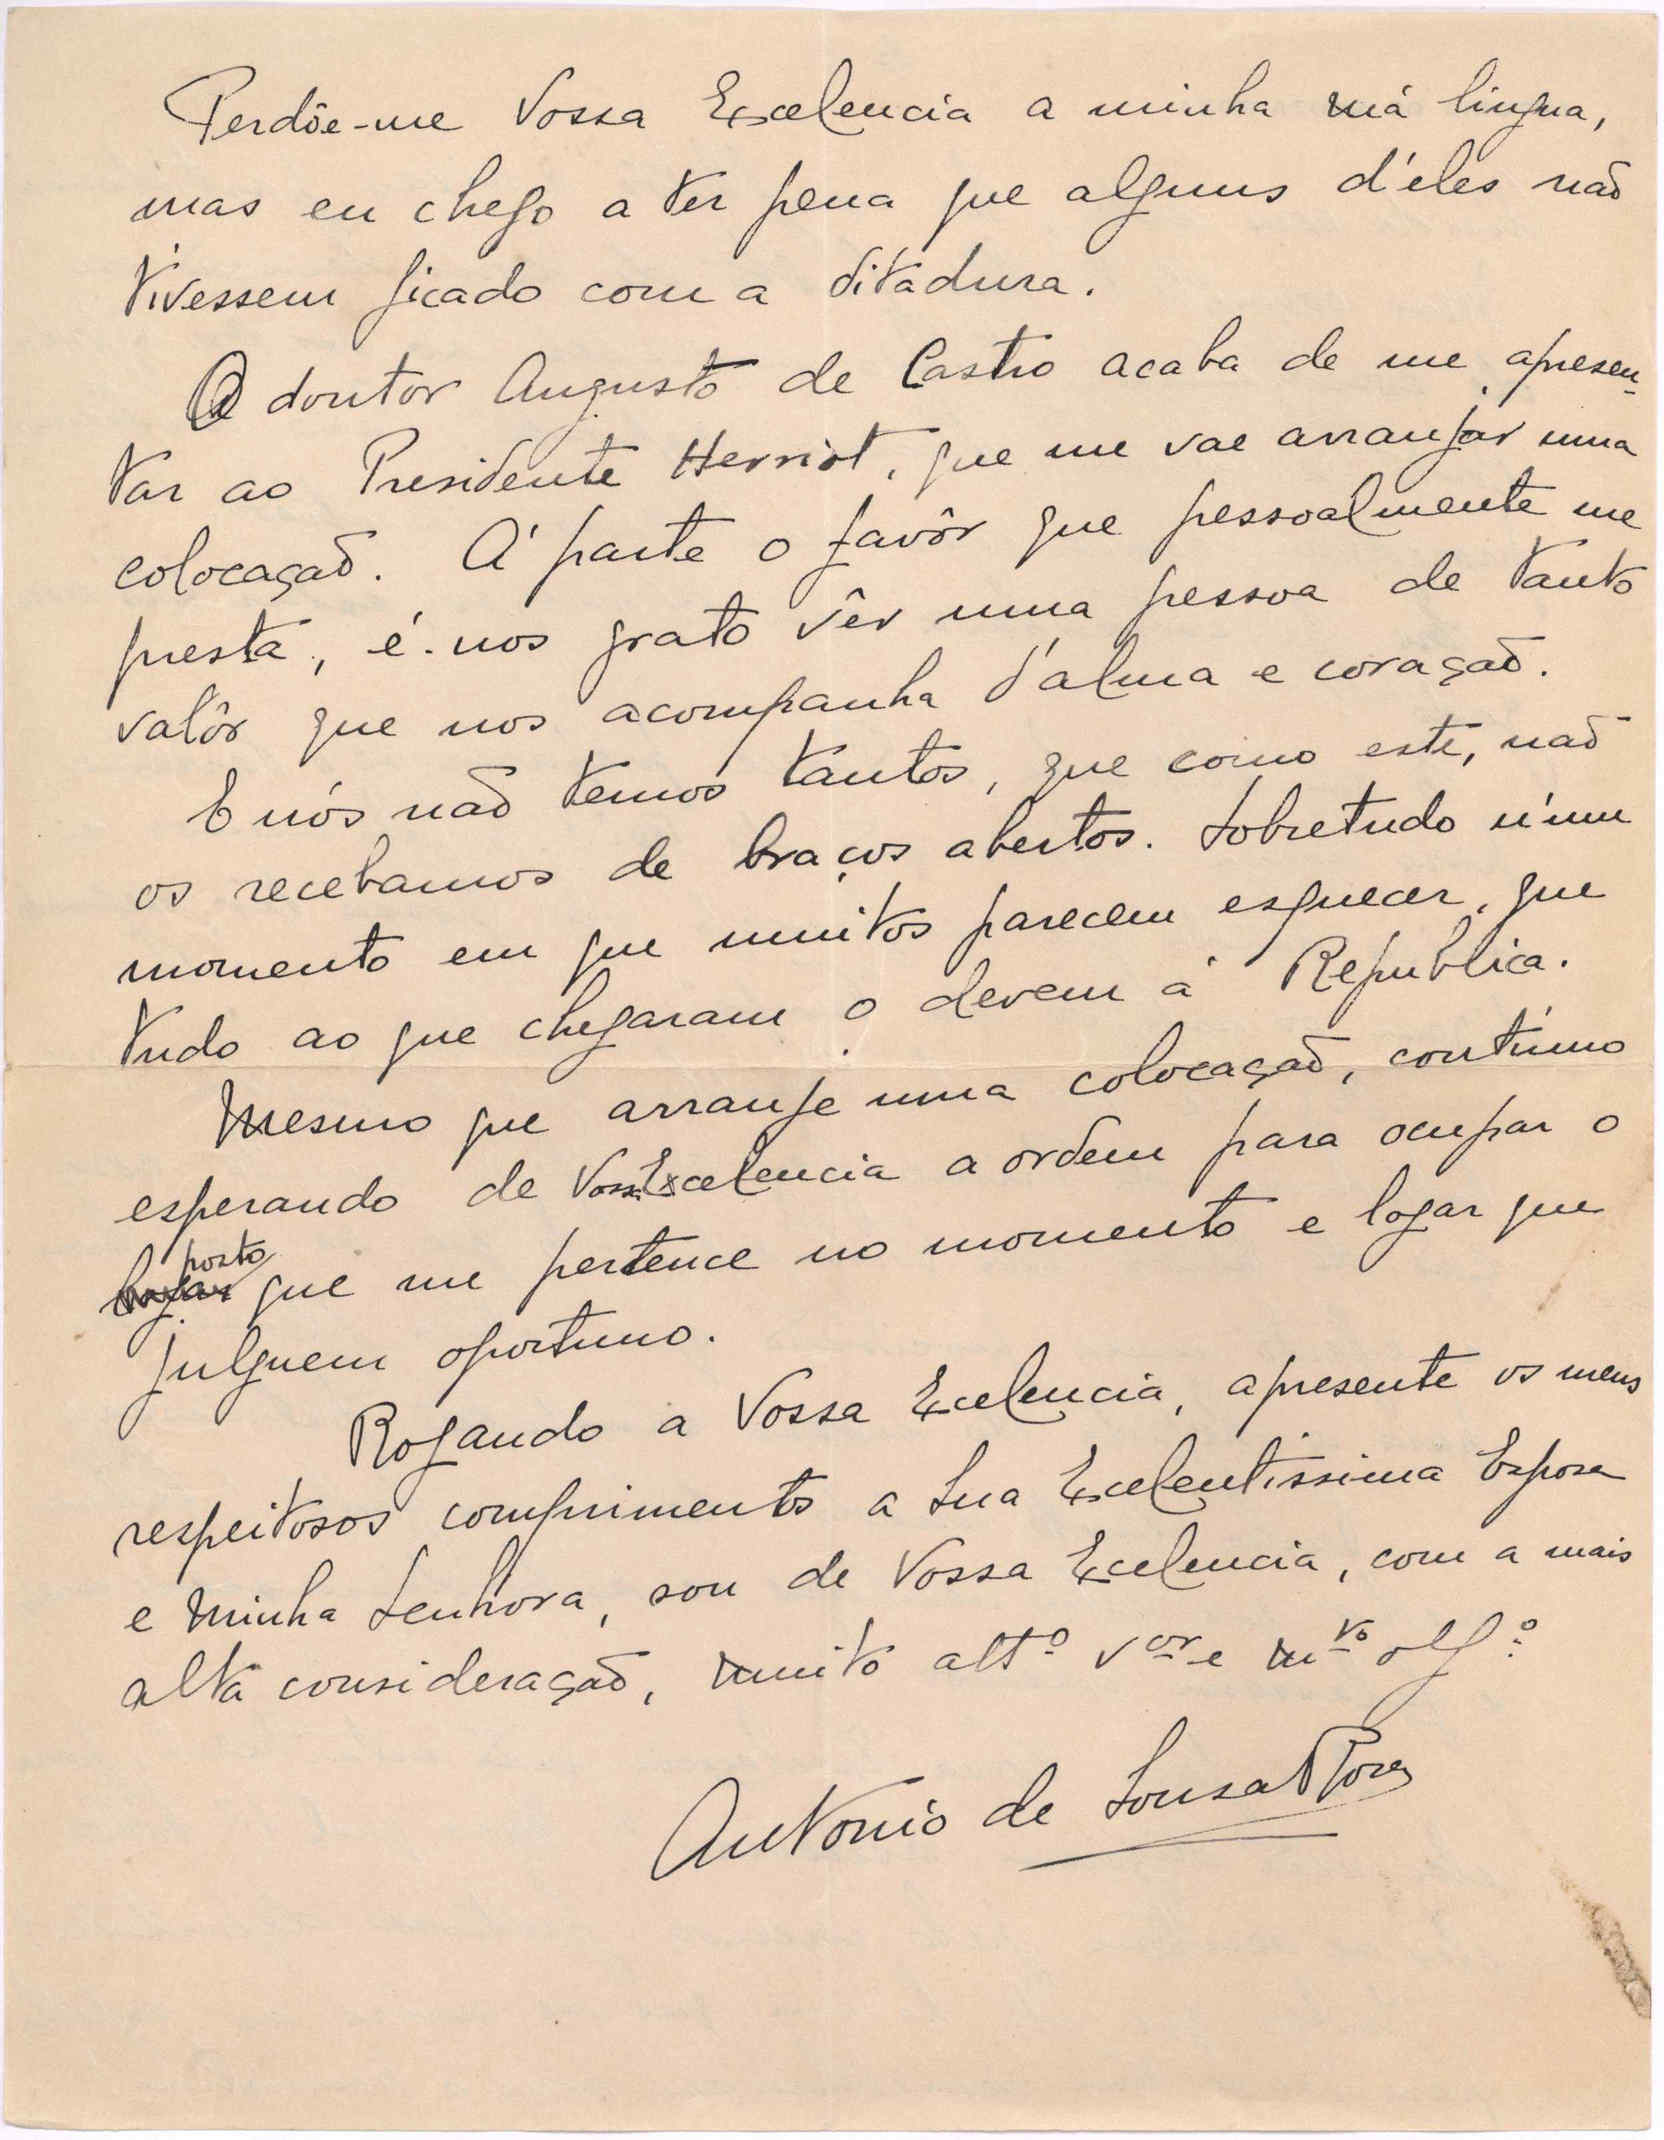 Perdôe-me Vossa Excelencia a minha má lingua,
mas eu chego a ter pena que alguns d'éles não
tivessem ficado com a ditadura.
O doutor Augusto de Castro acaba de me apresen-
tar ao Presidente Herriot, que me vae arranjar uma
colocação. Á parte o favôr que pessoalmente me
presta, é-nos grato vêr uma pessoa de tanto
valôr que nos acompanha d'alma e coração.
E nós não temos tantos, que como este, não
os recebamos de braços abertos. Sobretudo n'um
momento em que muitos parecem esquecer, que
tudo ao que chegaram o devem á Republica.
Mesmo que arranje uma colocação, contínuo
esperando de Vossa Excelencia a ordem para ocupar o
posto
logar que me pertence no momento e logar que
julguem oportuno.
Rogando a Vossa Excelencia, apresente os meus
respeitosos comprimentos a Sua Excelentissima Esposa
e Minha Senhora, sou de Vossa Excelencia, com a mais
alta consideração, muito attº vor e mto obgº
Antonio de Sousa